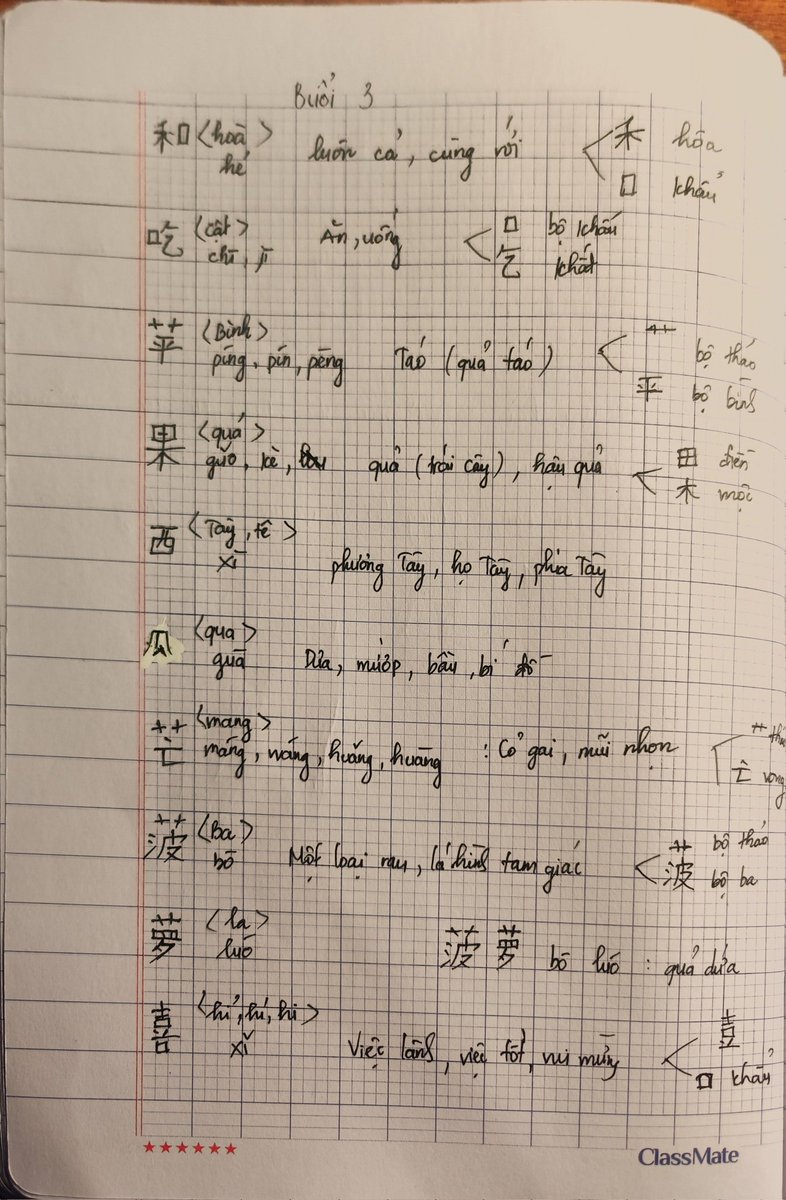 Buổi 3
和 <hoà> luôn cả, cùng với 禾 hòa
hé 口 khẩu
吃 <cật> Ăn, uống 口 bộ khẩu
chī, jī 乞 khất
苹 <Bình> 艹 bộ thảo
píng, pín, pēng Táo (quả táo) 平 bộ bình
果 <quả> 田 điền
guǒ, kè, quả (trái cây), hậu quả 木 mộc
西 <Tây, tê>
xī phương Tây, họ Tây, phía Tây
瓜 <qua>
guā Dưa, mướp, bầu, bí
芒 <mang> 艹
máng, wáng, huǎng, huāng : Cỏ gai, mũi nhọn 亡 vong
菠 <Ba> 艹 bộ thảo
bō Một loại rau, lá hình tam giác 波 bộ ba
萝 <la>
luó 菠 萝 bō luó : quả dứa
喜 <hỉ, hí, hi>
xǐ Việc lành, việc tốt, vui mừng 口 khẩu
ClassMate